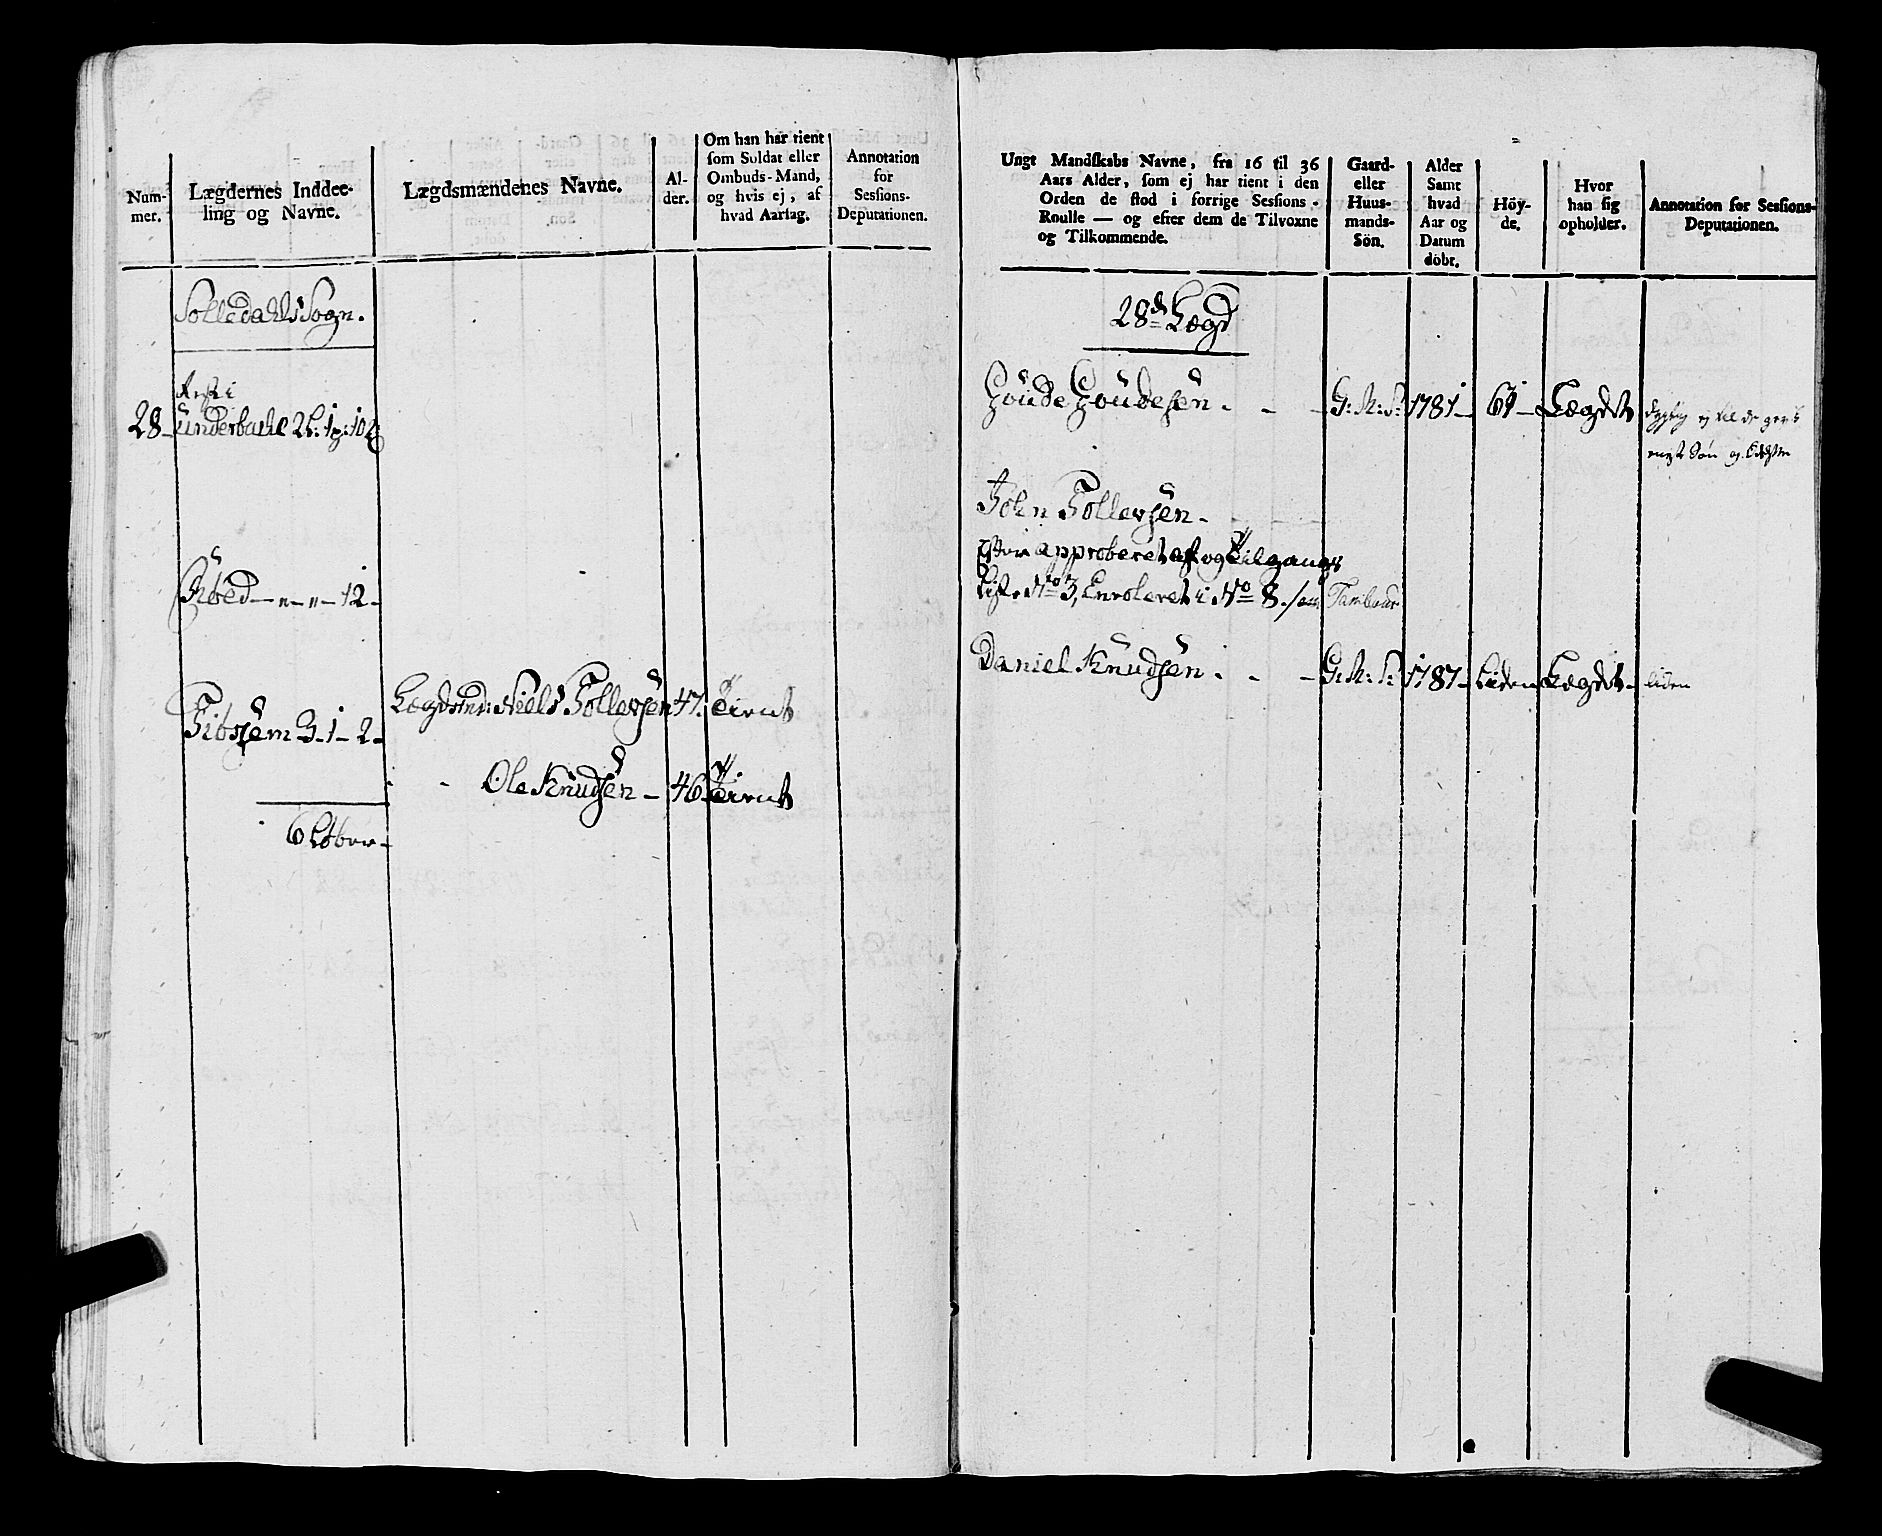 Num-
mer.
Lægdernes Inddee-
ling og Navne.
Lægdsmændenes Navne.
Al-
der.
Om han har tient
som Soldat eller
Ombuds-Mand,
og hvis ej, af
hvad Aarsag.
Annotation
for
Sessions-
Deputationen.
Solledahls Sogn.
28-
Underbache 2
12-
3-1-2-
Lægdsmd: Niels Tollevsen 47. Tient
- Ole Knudsen - 46 Tient
6 Løber-
Ungt Mandskabs Navne, fra 16 til 36
Aars Alder, som ej har tient i den
Orden de stod i forrige Sessions-
Roulle — og efter dem de Tilvoxne
og Tilkommende.
Gaard-
eller
Huus-
mands-
Sön.
Alder
Samt
hvad
Aar og
Datum
döbt.
Höy-
de.
Hvor
han sig
opholder.
Annotation for Sessions-
Deputationen.
28de Lægd
Goude Goudesen. - - G: M: S: 1781- 61- Lægdet
eneste Søn og
John Tollevsen-
approberet af og Tilgangs
Liste No 3, Enroleret i No 8. som Tambour
Daniel Knudsen. - - G: M: S: 1787- Liden Lægdet- liden